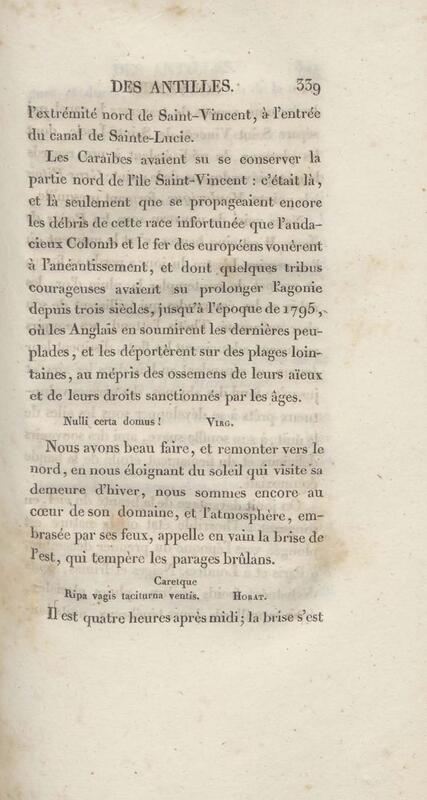 DES ANTILLES. 339
l'extrémité nord de Saint-Vincent, à l'entrée
du canal de Sainte-Lucie.
Les Caraïbes avaient su se conserver la
partie nord de l'île Saint-Vincent : c'était là,
et là seulement que se propageaient encore
les débris de cette race infortunée que l'auda-
cieux Colomb et le fer des européens vouèrent
à l'anéantissement, et dont quelques tribus
courageuses avaient su prolonger l'agonie
depuis trois siècles, jusqu'à l'époque de 1795,
où les Anglais en soumirent les dernières peu-
plades, et les déportèrent sur des plages loin-
taines, au mépris des ossemens de leurs aïeux
et de leurs droits sanctionnés par les âges.
Nulli certa domus ! VIRG.
Nous avons beau faire, et remonter vers le
nord, en nous éloignant du soleil qui visite sa
demeure d'hiver, nous sommes encore au
cœur de son domaine, et l'atmosphère, em-
brasée par ses feux, appelle en vain la brise de
l'est, qui tempère les parages brûlans.
Caretque
Ripa vagis taciturna ventis. HORAT.
Il est quatre heures après midi ; la brise s'est